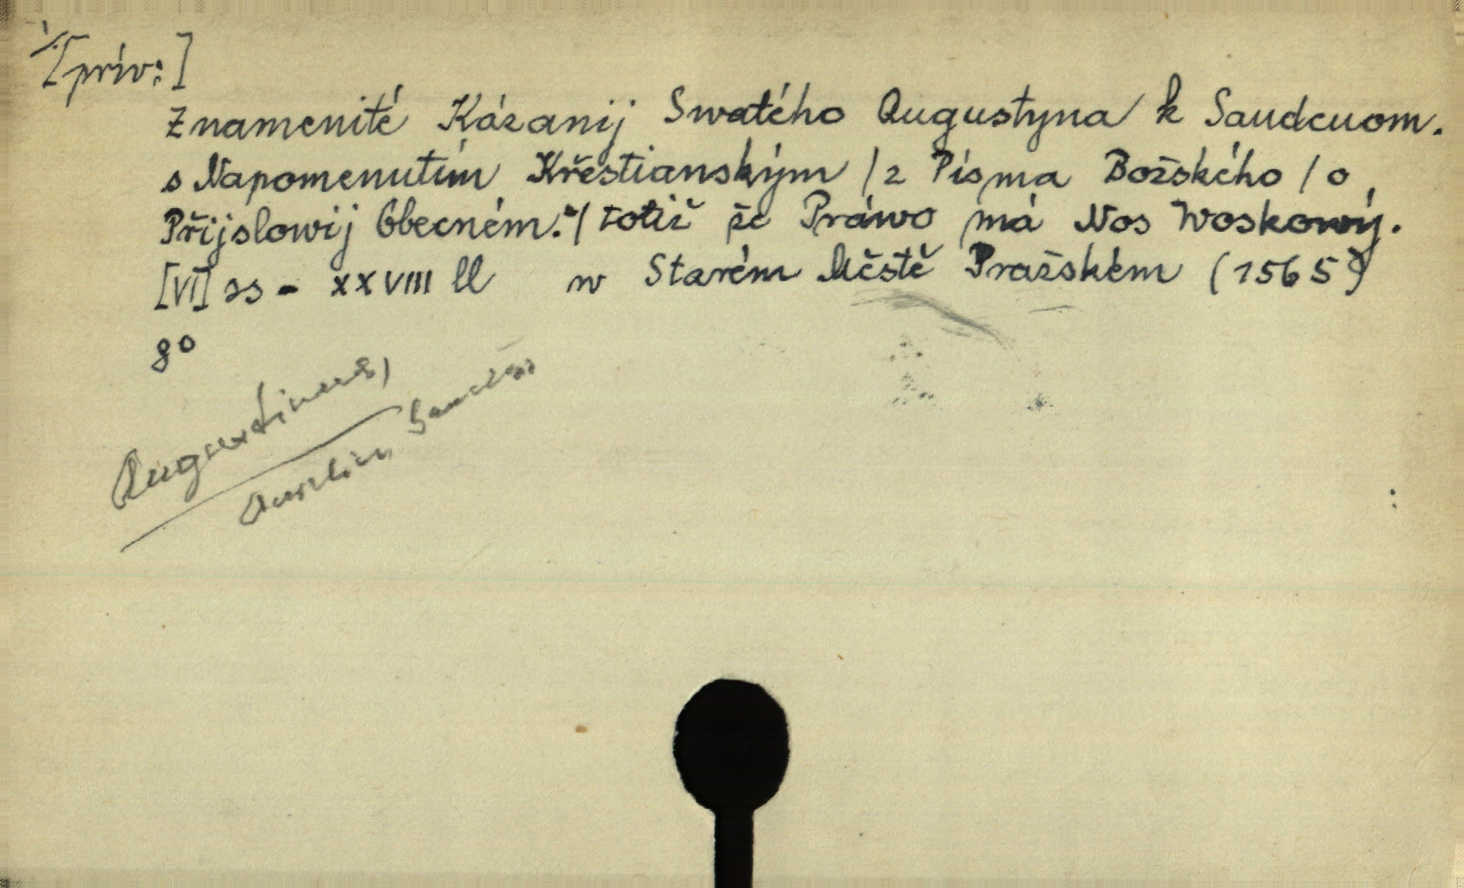 [přív:]
Znamenité Kázanij Swatého Augustyna k Saudcuom.
s Napomenutím Křestianským / z Písma Božského / o
Přijslowij Obecném: / totiž že Práwo má Nos Woskowý.
[VI] ss - XXVIII ll w Starém Městě Pražském (1565)
8°
Augustinus,
Aurelius Sanctus